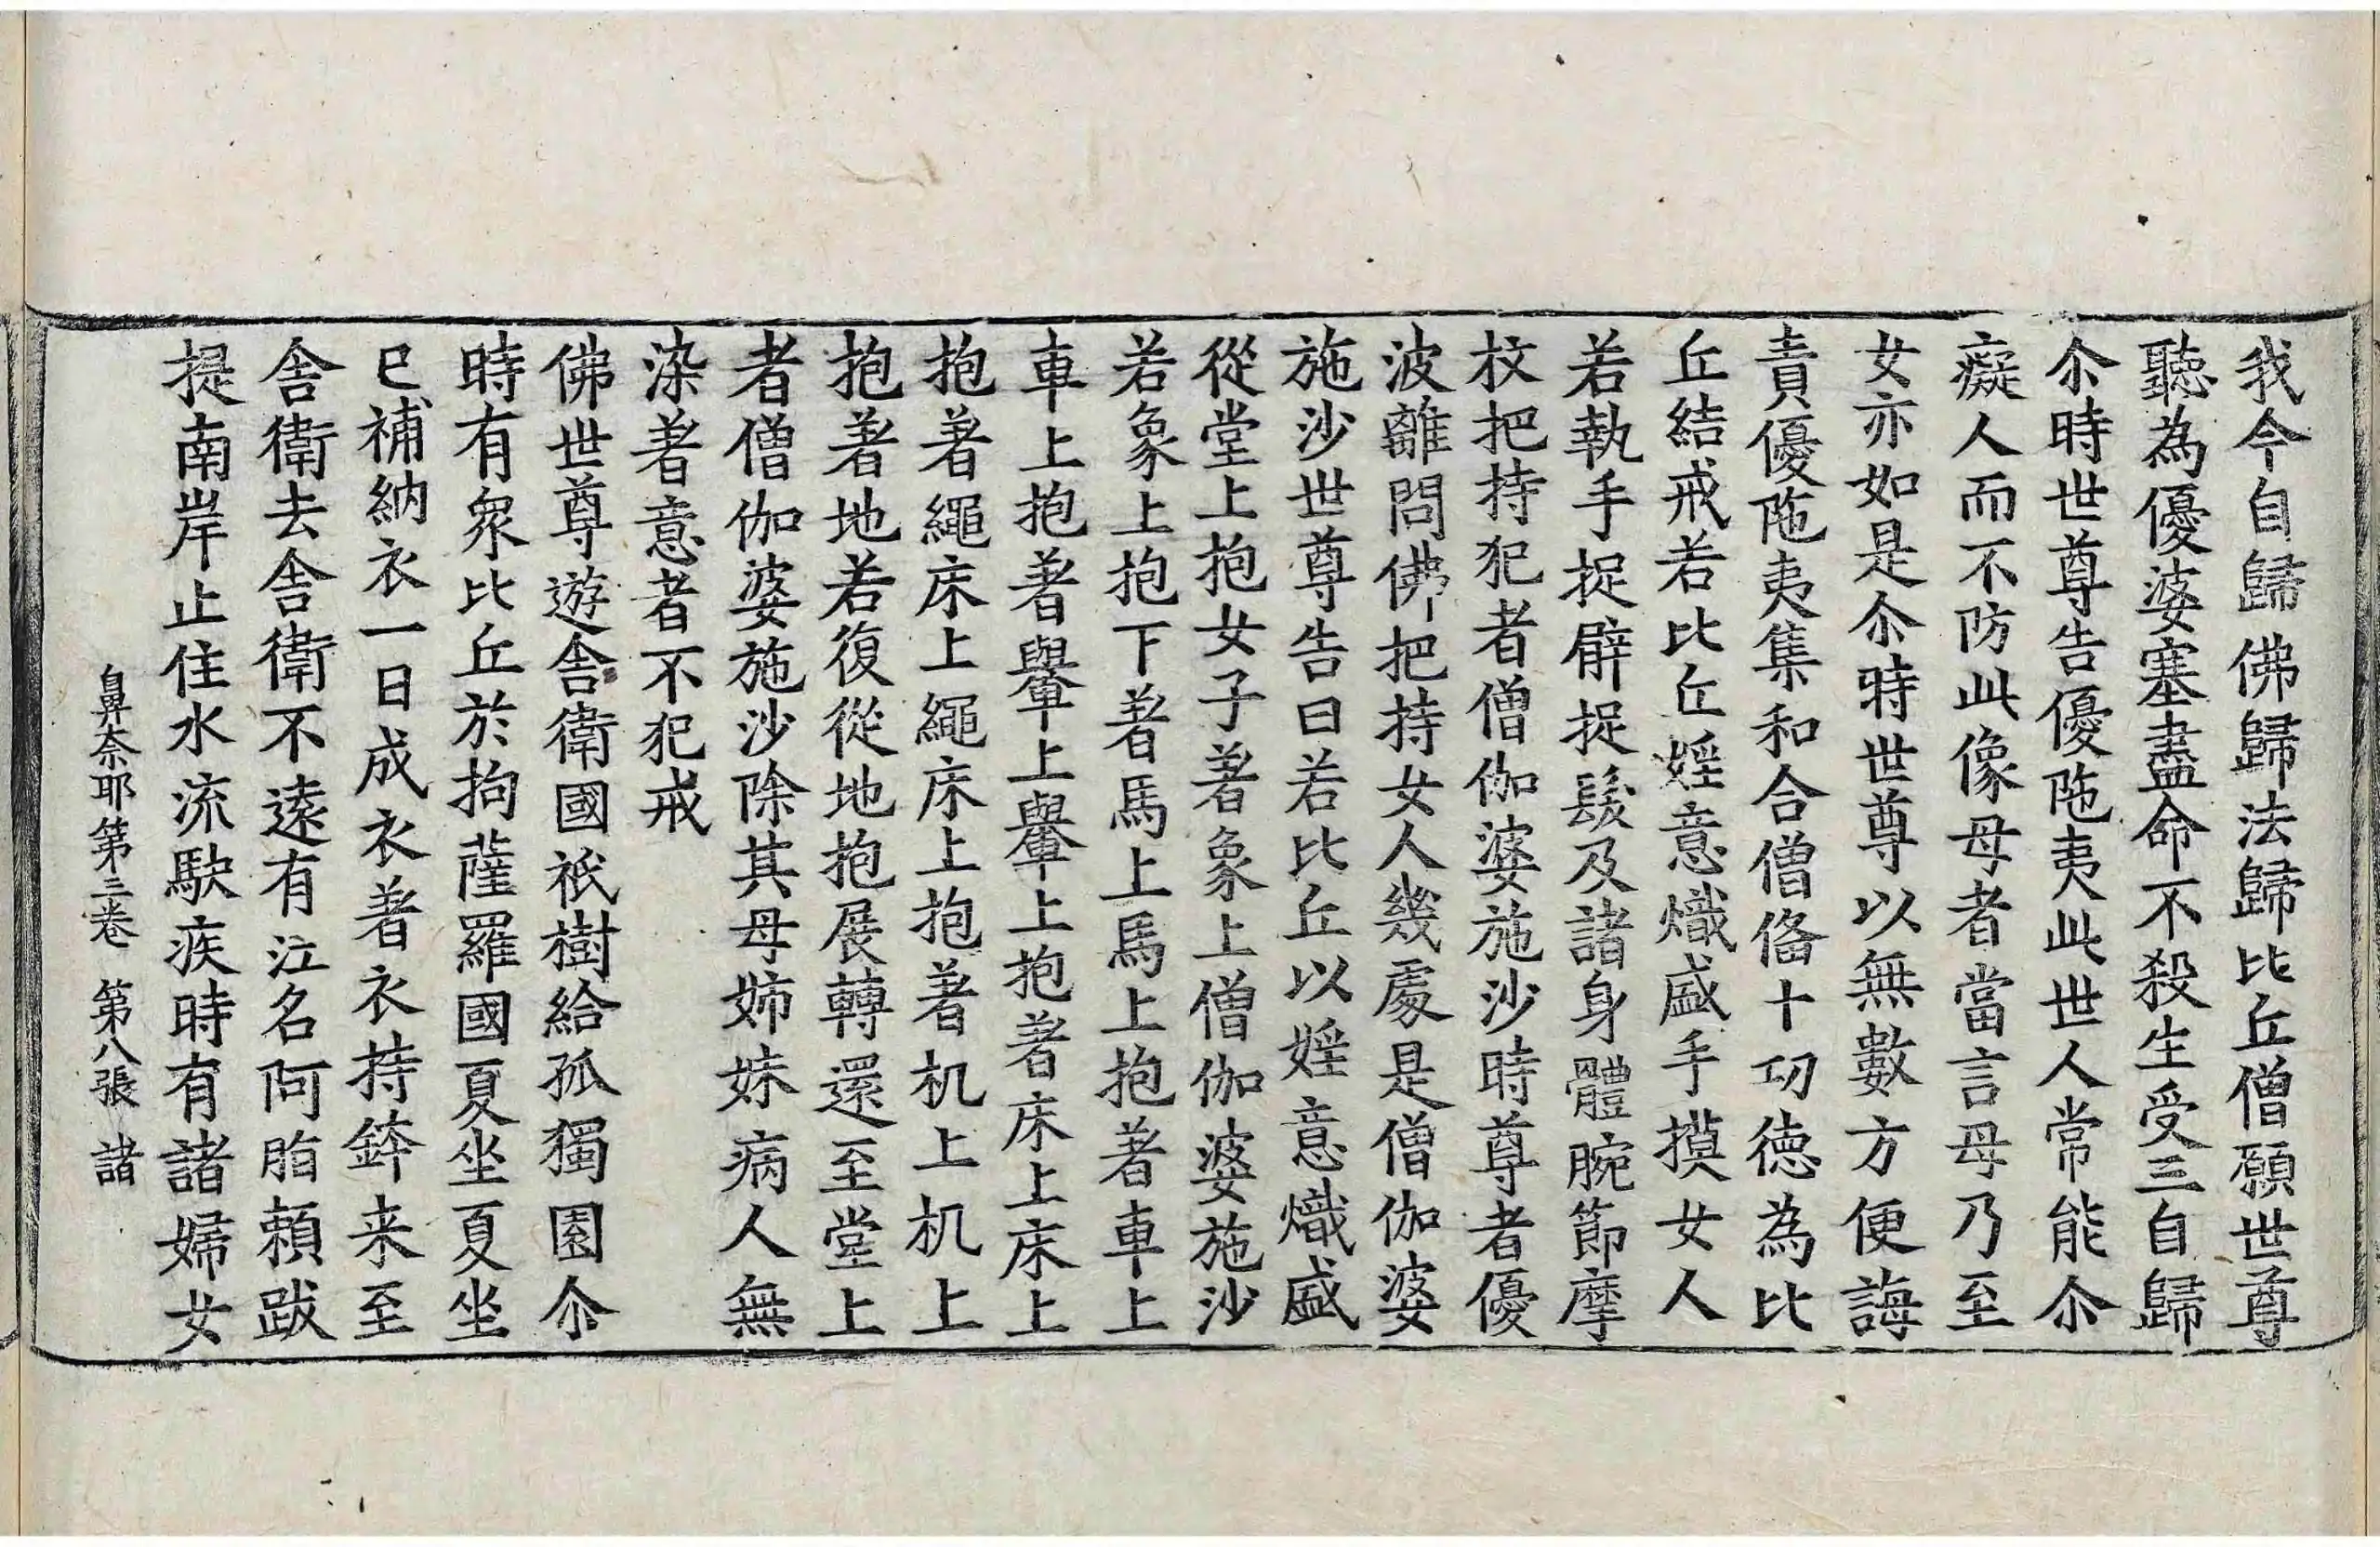 我今自歸佛歸法歸比丘僧願世尊
聽為優婆塞盡命不殺生受三自歸
尒時世尊告優陁夷此世人常能尒
癡人而不防此像母者當言母乃至
女亦如是尒時世尊以無數方便誨
責優陁夷集和合僧俻十功徳為比
丘結戒若比丘婬意熾盛手摸女人
若執手捉臂捉髮及諸身體腕節摩
抆把持犯者僧伽婆施沙時尊者優
波離問佛把持女人幾處是僧伽婆
施沙世尊告曰若比丘以婬意熾盛
從堂上抱女子著象上僧伽婆施沙
若象上抱下著馬上馬上抱著車上
車上抱著轝上轝上抱著床上床上
抱著繩床上繩床上抱著机上机上
抱著地若復從地抱展轉還至堂上
者僧伽婆施沙除其母姉妹病人無
染著意者不犯戒
佛世尊遊舎衛國祇樹給孤獨園尒
時有衆比丘於拘薩羅國夏坐夏坐
已補納衣一日成衣著衣持鉢来至
舎衛去舎衛不遠有江名阿脂頼跋
提南岸止住水流駃疾時有諸婦女
鼻奈耶第三卷　第八張　諸